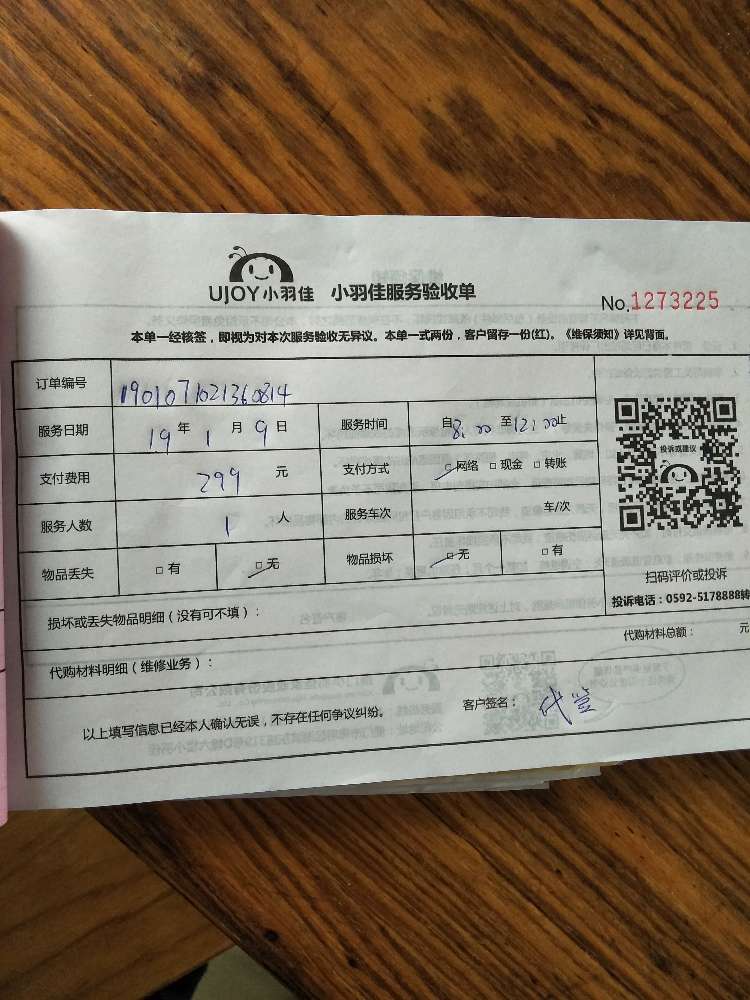 UJOY小羽佳 小羽佳服务验收单
No.1273225
本单一经核签，即视为对本次服务验收无异议。本单一式两份，客户留存一份(红)。《维保须知》详见背面。
订单编号 1901071021360814
服务日期 19年1月9日 服务时间 自8:00至12:00止
支付费用 299元 支付方式 网络 现金 转账
服务人数 1人 服务车次 车/次
物品丢失 有 无 物品损坏 无 有
投诉或建议
扫码评价或投诉
投诉电话：0592-5178888转
损坏或丢失物品明细（没有可不填）：
代购材料总额： 元
代购材料明细（维修业务）：
以上填写信息已经本人确认无误，不存在任何争议纠纷。 客户签名： 代签